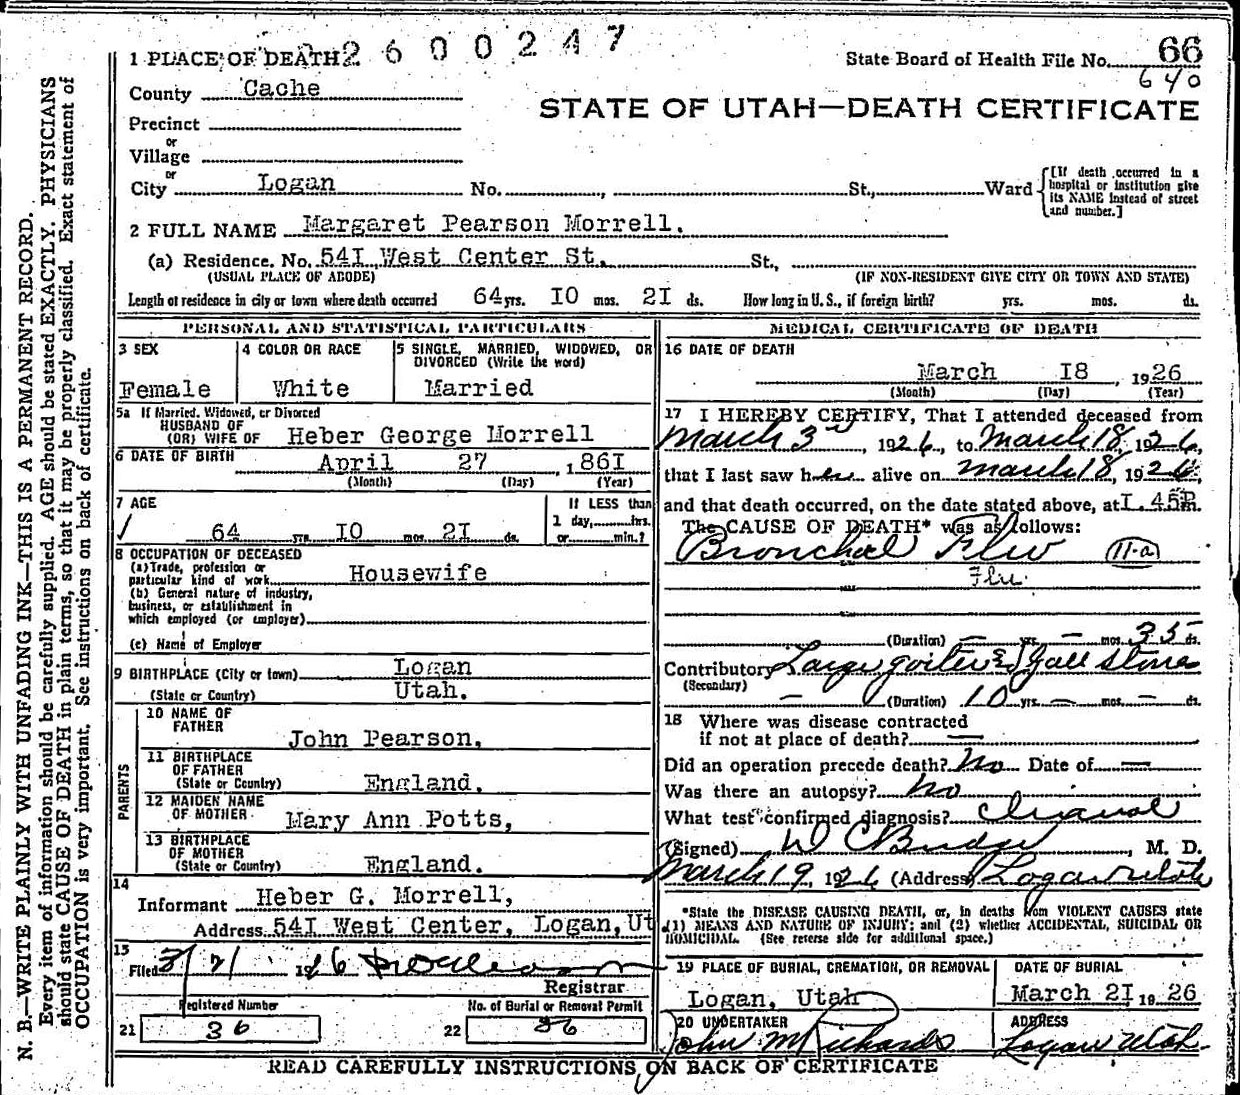 2600247
1 PLACE OF DEATH
State Board of Health File No. 66
640
County Cache
STATE OF UTAH—DEATH CERTIFICATE
Precinct
or
Village
or
City Logan No. , St., Ward
[If death occurred in a hospital or institution give its NAME instead of street and number.]
2 FULL NAME Margaret Pearson Morrell.
(a) Residence. No. 541 West Center St. St.,
(USUAL PLACE OF ABODE) (IF NON-RESIDENT GIVE CITY OR TOWN AND STATE)
Length of residence in city or town where death occurred 64 yrs. 10 mos. 21 ds. How long in U. S., if foreign birth? yrs. mos. ds.
PERSONAL AND STATISTICAL PARTICULARS
3 SEX 4 COLOR OR RACE 5 SINGLE, MARRIED, WIDOWED, OR
DIVORCED (Write the word)
Female White Married
5a If Married, Widowed, or Divorced
HUSBAND OF
(OR) WIFE OF Heber George Morrell
6 DATE OF BIRTH April 27 , 1861
(Month) (Day) (Year)
7 AGE If LESS than
1 day, hrs.
64 yrs. 10 mos. 21 ds. or min.?
8 OCCUPATION OF DECEASED
(a) Trade, profession or
particular kind of work Housewife
(b) General nature of industry,
business, or establishment in
which employed (or employer)
(c) Name of Employer
9 BIRTHPLACE (City or town) Logan
(State or Country) Utah.
PARENTS
10 NAME OF
FATHER John Pearson,
11 BIRTHPLACE
OF FATHER
(State or Country) England.
12 MAIDEN NAME
OF MOTHER Mary Ann Potts,
13 BIRTHPLACE
OF MOTHER
(State or Country) England.
14
Informant Heber G. Morrell,
Address 541 West Center, Logan, Ut
15
Filed 3/21 1926
Registrar
Registered Number No. of Burial or Removal Permit
21 36 22 36
MEDICAL CERTIFICATE OF DEATH
16 DATE OF DEATH
March 18 , 1926
(Month) (Day) (Year)
17 I HEREBY CERTIFY, That I attended deceased from
March 3rd, 1926, to March 18, 1926,
that I last saw her alive on March 18, 1926,
and that death occurred, on the date stated above, at 1.45P m.
The CAUSE OF DEATH* was as follows:
Bronchial Flu (11-a)
Flu.
(Duration) — yrs. — mos. 35 ds.
Contributory Large goiter & Gall stones
(Secondary)
— (Duration) 10 yrs. — mos. — ds.
18 Where was disease contracted
if not at place of death? —
Did an operation precede death? No Date of —
Was there an autopsy? No
What test confirmed diagnosis? Clinical
(Signed) W C Budge, M. D.
March 19, 1926 (Address) Logan Utah
*State the DISEASE CAUSING DEATH, or, in deaths from VIOLENT CAUSES state
(1) MEANS AND NATURE OF INJURY; and (2) whether ACCIDENTAL, SUICIDAL OR
HOMICIDAL. (See reverse side for additional space.)
19 PLACE OF BURIAL, CREMATION, OR REMOVAL DATE OF BURIAL
Logan, Utah March 21, 1926
20 UNDERTAKER ADDRESS
John M Richards Logan Utah.
READ CAREFULLY INSTRUCTIONS ON BACK OF CERTIFICATE
N. B.—WRITE PLAINLY WITH UNFADING INK—THIS IS A PERMANENT RECORD.
Every item of information should be carefully supplied. AGE should be stated EXACTLY. PHYSICIANS
should state CAUSE OF DEATH in plain terms, so that it may be properly classified. Exact statement of
OCCUPATION is very important. See instructions on back of certificate.